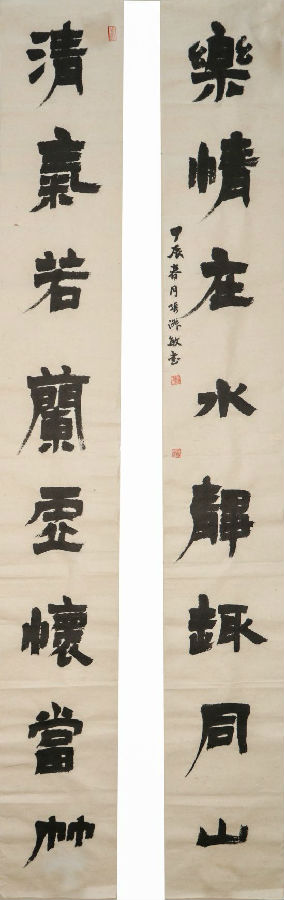 樂情在水靜趣同山
辰春月敏書
清氣若蘭虛懷當竹